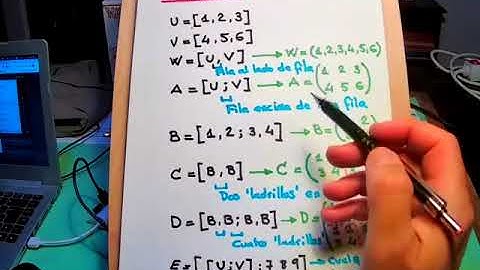 U = [1,2,3]
V = [4,5,6]
W = [U,V] → W = (1,2,3,4,5,6)
Fila al lado de fila
A = [U;V] → A = (1 2 3
4 5 6)
Fila encima de fila
B = [1,2;3,4] → B = (
2)
C = [B,B] → C = (1
3 4
Dos 'ladrillos' en
D = [B,B;B,B] → D =
Cuatro 'ladrillos'
E = [[U;V];7 8 9] →